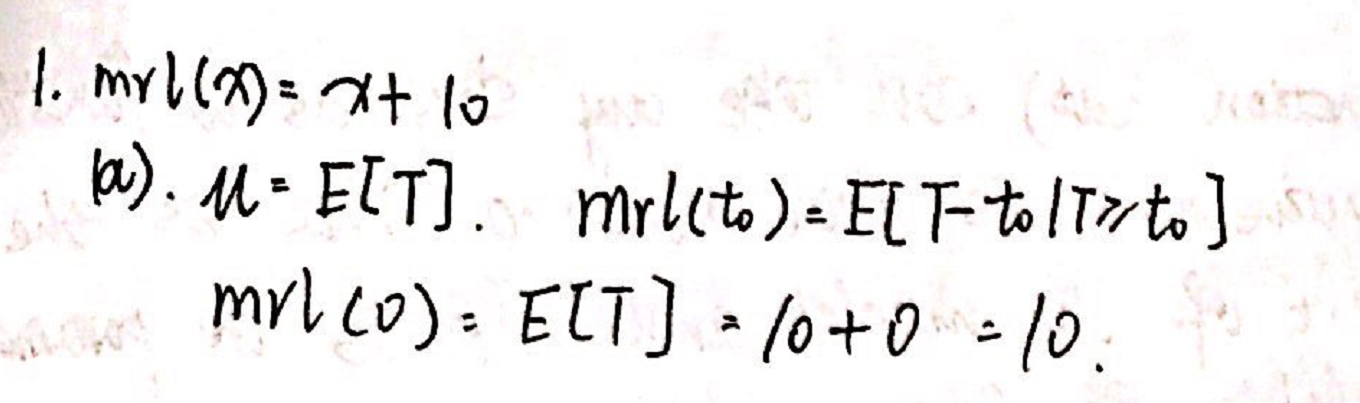 1. mrl(x) = x + 10
(a). μ = E[T]. mrl(t₀) = E[T - t₀ | T ≥ t₀]
mrl(0) = E[T] = 10 + 0 = 10.